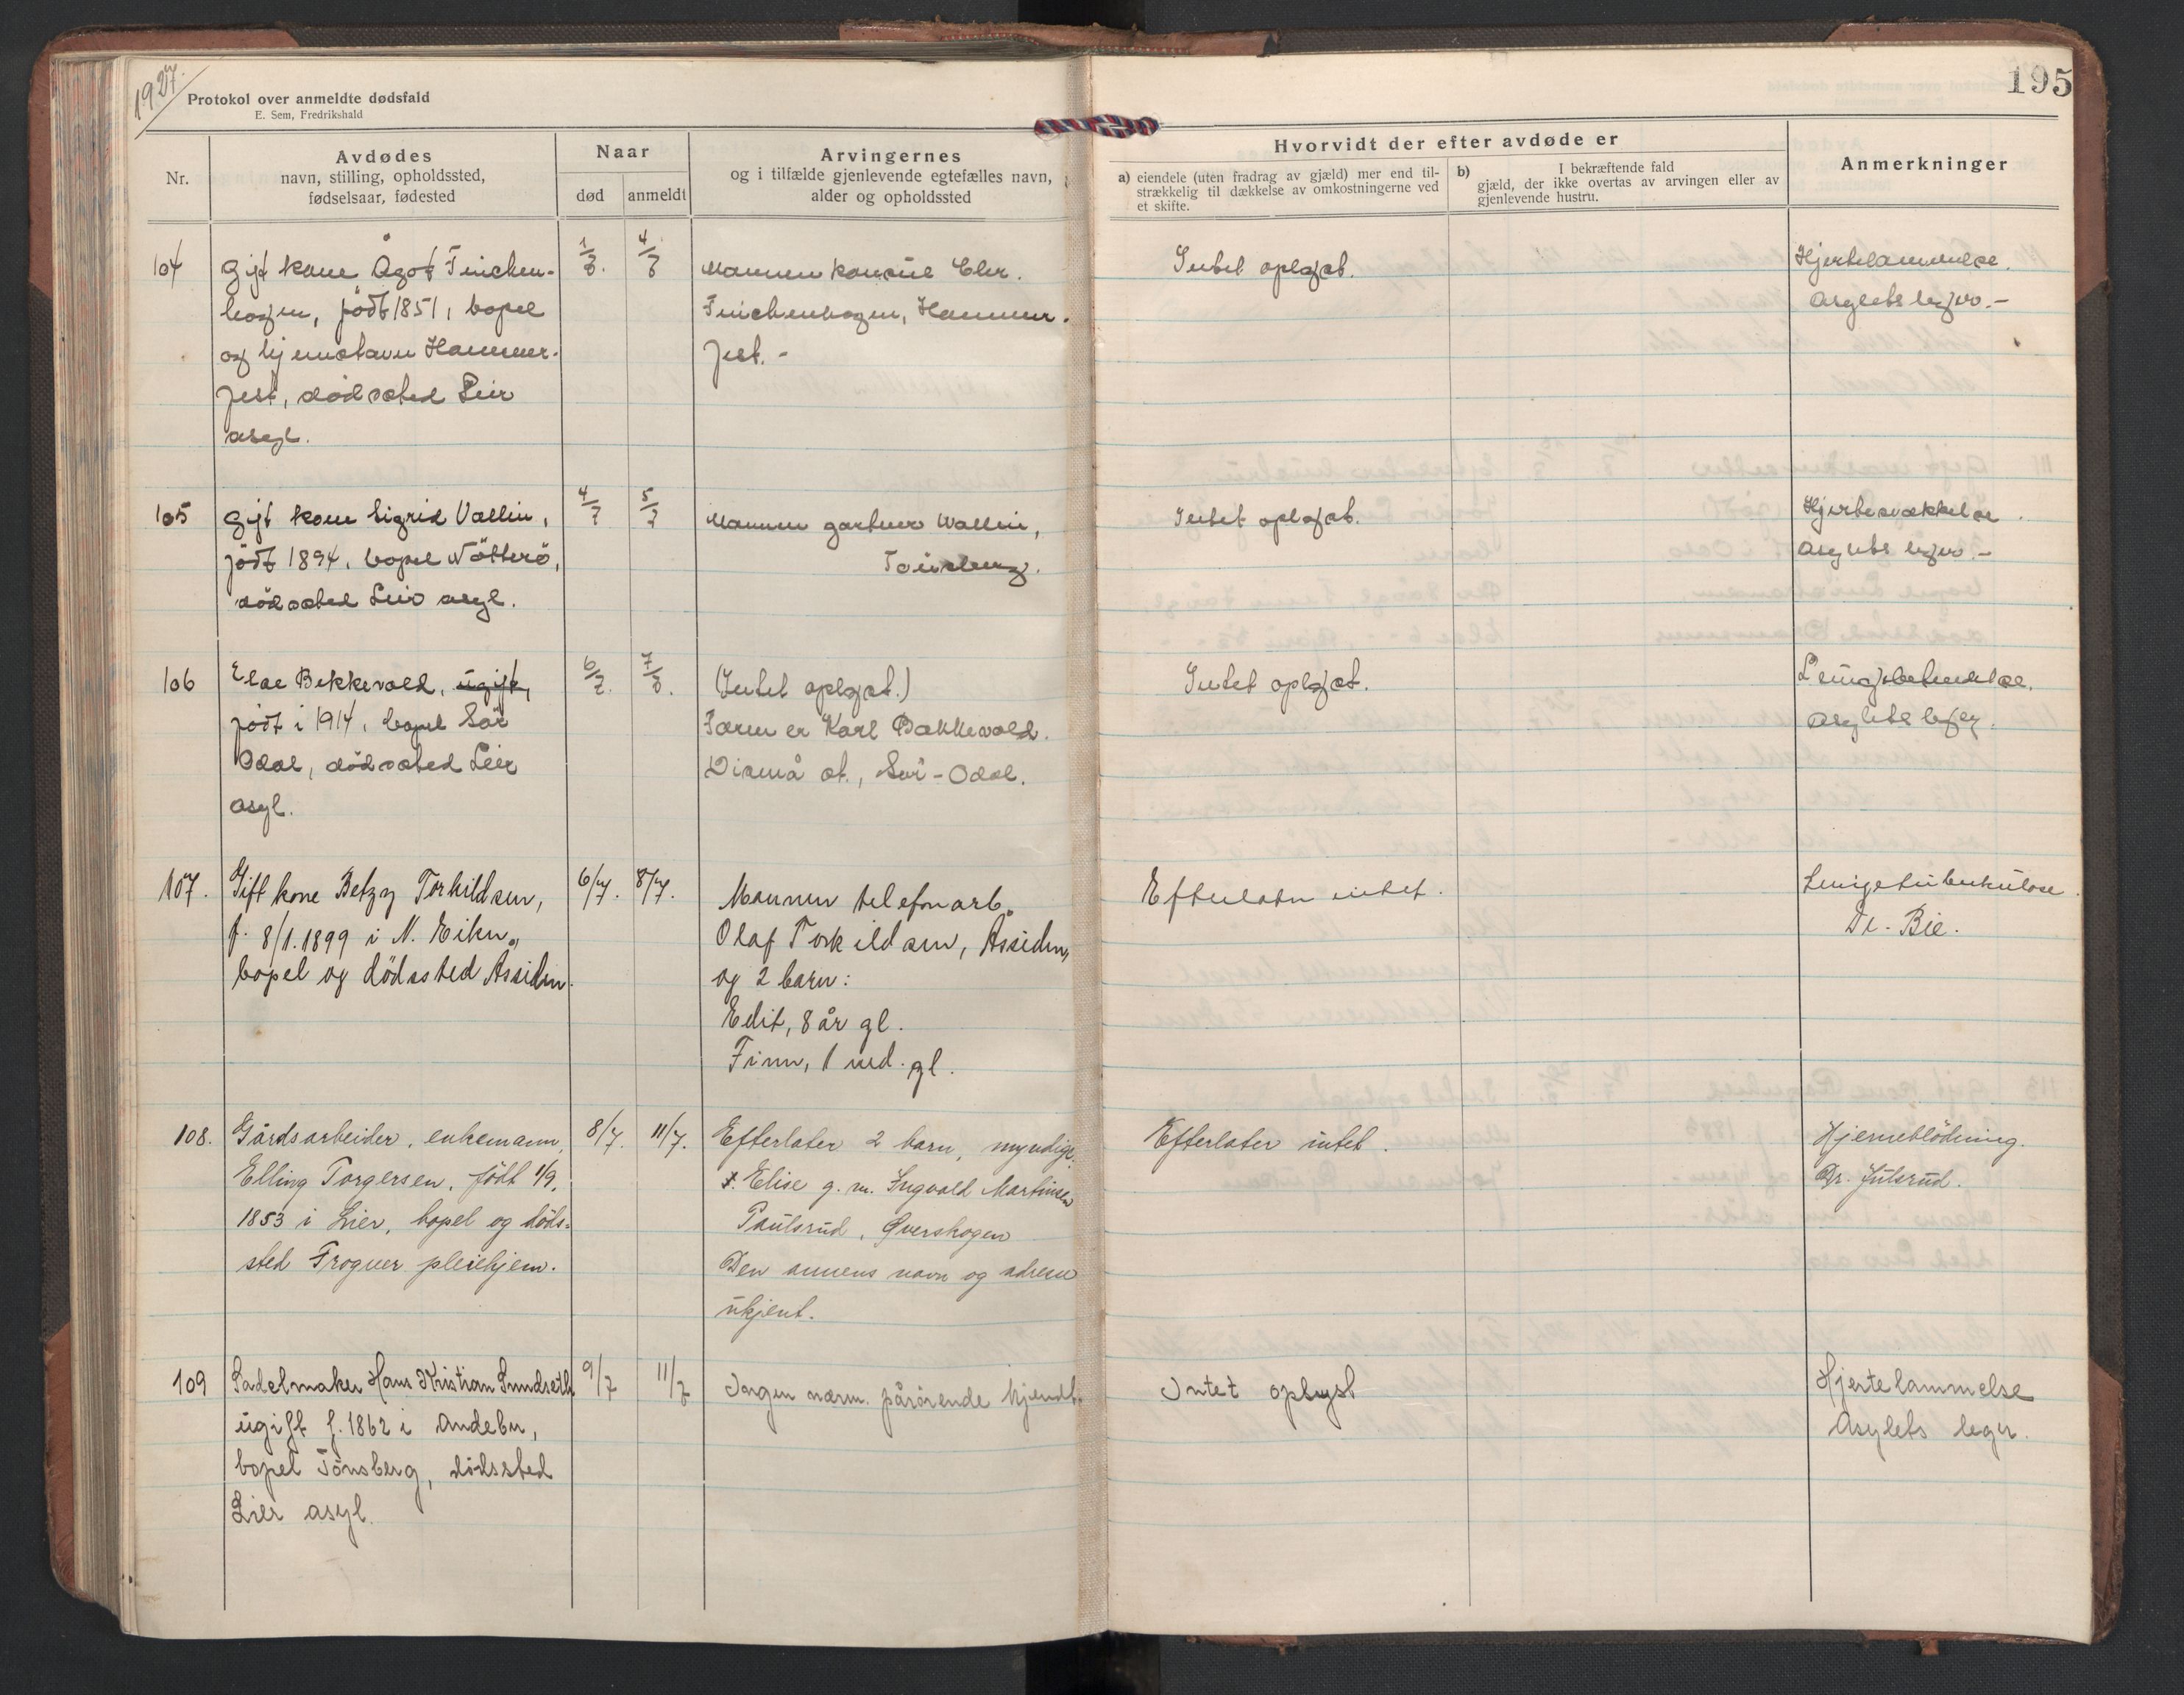 1927.
195
Protokol over anmeldte dødsfald
E. Sem, Fredrikshald
Nr.
Avdødes
navn, stilling, opholdssted,
fødselsaar, fødested
Naar
død
anmeldt
Arvingernes
og i tilfælde gjenlevende egtefælles navn,
alder og opholdssted
Hvorvidt der efter avdøde er
a) eiendele (uten fradrag av gjæld) mer end til-
strækkelig til dækkelse av omkostningerne ved
et skifte.
b) I bekræftende fald
gjæld, der ikke overtas av arvingen eller av
gjenlevende hustru.
Anmerkninger
104
Gift kone Ågot Finchen-
hagen, født 1851, bopel
og hjemstavn Hammer-
fest, dødssted Lier
asyl.
1/7.
4/7
Mannen konsul Chr.
Finchenhagen, Hammer-
fest.-
Intet oplyst.
Hjertelammelse.
Asylets læge.-
105
Gift kone Sigrid Vallin,
født 1894, bopel Nötterö,
dødssted Lier asyl.
4/7
5/7
Mannen gartner Wallin,
Tønsberg.
Intet oplyst.
Hjertesvækkelse.
Asylets læge.-
106
Else Bekkevold, ugift,
født i 1914, bopel Sør
Odal, dødssted Lier
asyl.
6/7.
7/7.
(Intet oplyst.)
Faren er Karl Bekkevold.
Disenå st., Sør-Odal.
Intet oplyst.
Lungebetendelse.
Asylets læge.
107.
Gift kone Betzy Torkildsen,
f. 8/1.1899 i N. Eiker,
bopel og dödssted Åssiden.
6/7.
8/7.
Mannen telefonarb.
Olaf Torkildsen, Åssiden,
og 2 barn:
Edit, 8 år gl.
Finn, 1 md. gl.
Efterlater intet.
Lungetuberkulose.
Dr. Bie.
108.
Gårdsarbeider, enkemann,
Elling Torgersen, født 1/9.
1853 i Lier, bopel og døds-
sted Frogner pleiehjem.
8/7.
11/7.
Efterlater 2 barn, myndige:
1. Elise g. m. Ingvald Martinsen
Paulsrud, Overskogen
Den annens navn og adresse
ukjent.
Efterlater intet.
Hjerneblödning.
Dr. Julsrud.
109
Sadelmaker Hans Kristian Sundseth
ugift f. 1862 i Andebu,
bopel Tönsberg, dödssted
Lier asyl.
9/7
11/7
Ingen nærm. pårörende kjendt.
Intet oplyst
Hjertelammelse
Asylets leger.